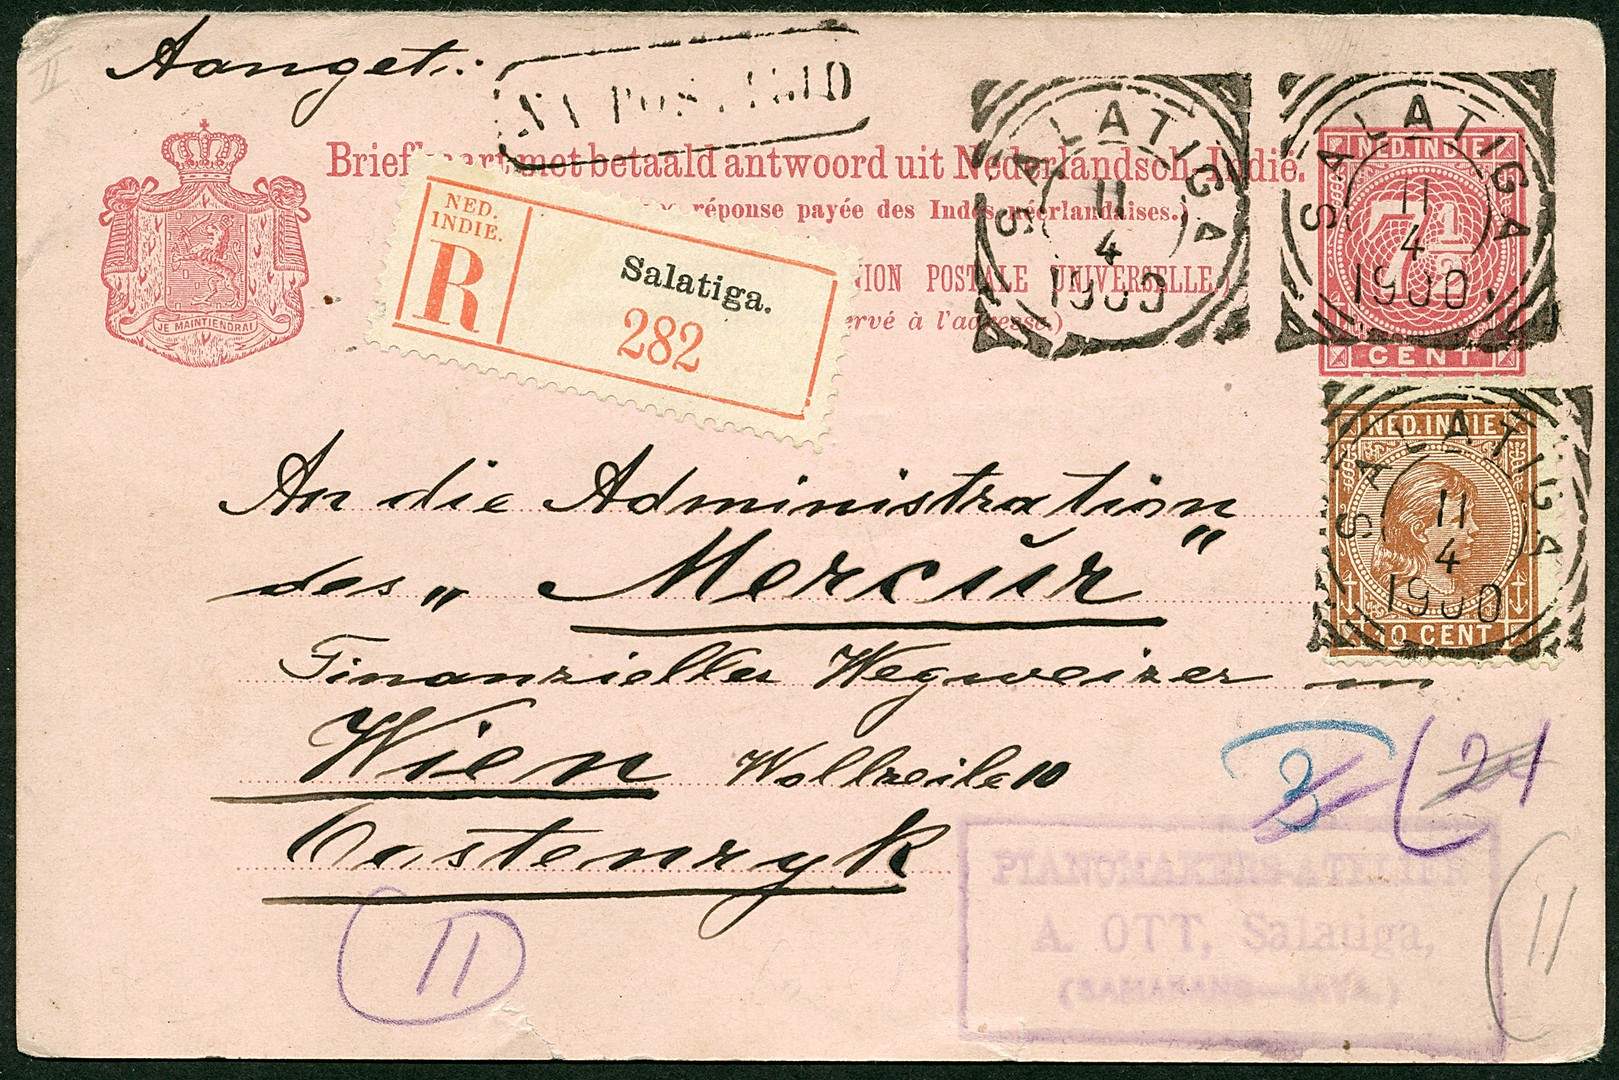 Aanget.:
Briefkaart met betaald antwoord uit Nederlandsch-Indië.
réponse payée des Indes néerlandaises.)
NION POSTALE UNIVERSELLE.
ervé à l'adresse.)
JE MAINTIENDRAI
NED.
INDIE.
R
Salatiga.
282
SALATIGA
11
4
1900
SALATIGA
11
4
1900
NED. INDIE
7 1/2
CENT
NED. INDIE
SALATIGA
11
4
1900
10 CENT
An die Administration
des „Mercur"
Finanzieller Wegweizer in
Wien Wollzeile 10
Oostenryk
3
21
11
11
PIANOMAKERS-ATELIER
A. OTT, Salatiga,
(SAMARANG—JAVA.)
II